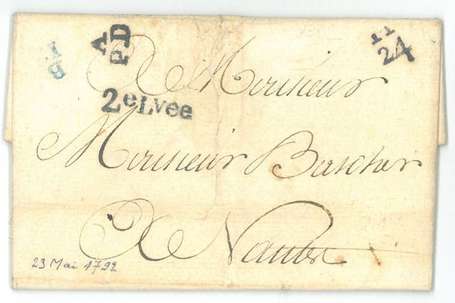 A
PD
24
2eLvée
A Monsieur
Monsieur Berscher
A Nantes
23 Mai 1792